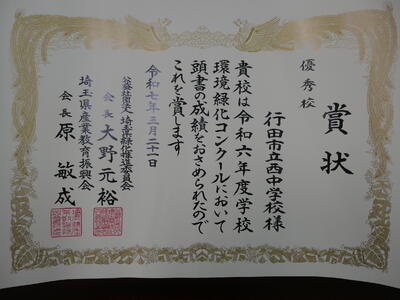 賞状
優秀校
行田市立西中学校様
貴校は令和六年度学校
環境緑化コンクールにおいて
頭書の成績をおさめられたので
これを賞します
令和七年三月二十一日
公益社団法人 埼玉県緑化推進委員会
会長 大野元裕
埼玉県産業教育振興会
会長 原敏成